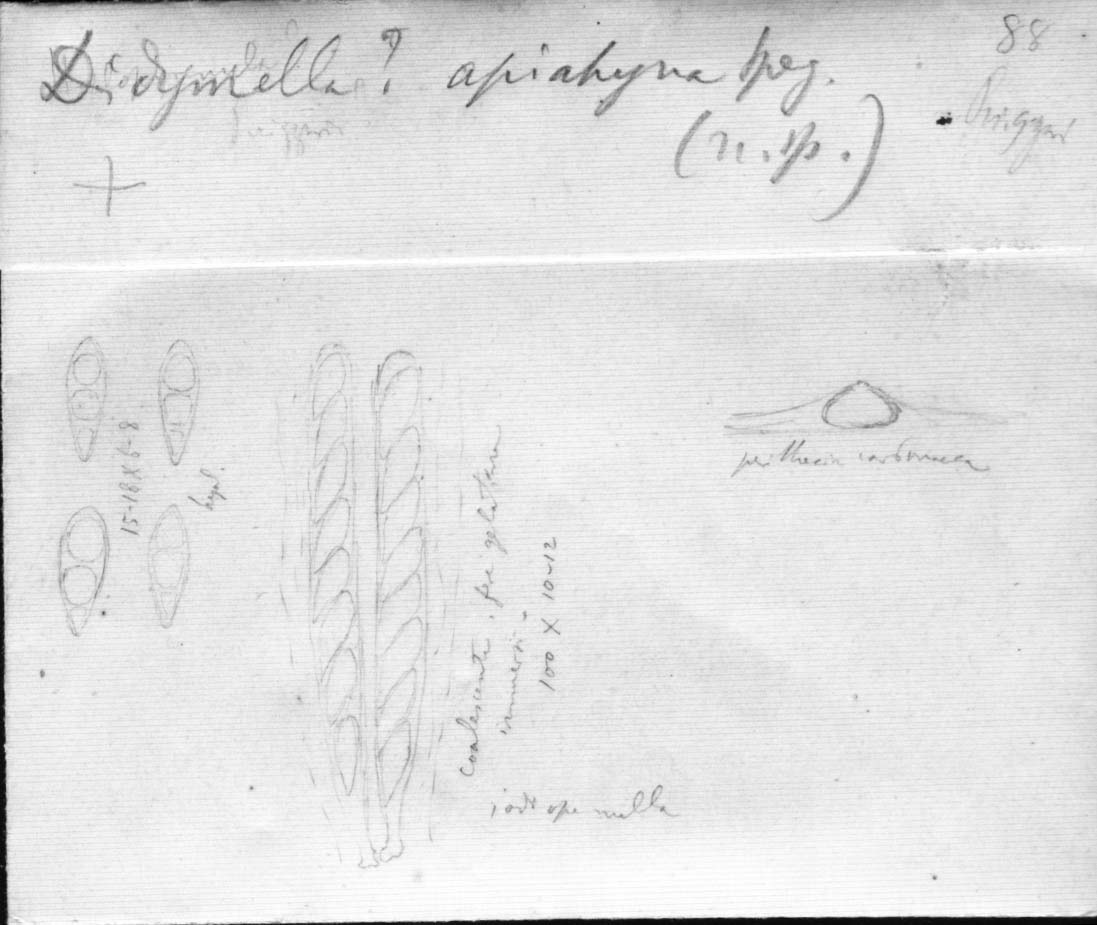 88
Didymella? apiahyna Speg.
(n. sp.)
Puiggari
15-18 X 6-8
hyal.
coalescente,
immersi
100 X 10-12
perithecia carbonacea
iodi ope nulla